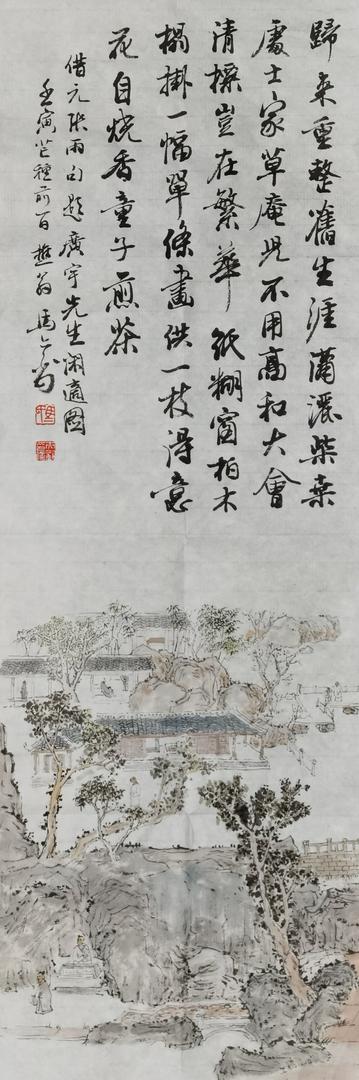 歸来重整舊生涯瀟灑柴桑
處士家草庵児不用高和大會
清標豈在繁華紙糊窗柏木
榻掛一幅單條畫供一枝得意
花自燒香童子煎茶
借元張雨句題廣宇先生闲適圖
壬寅芒種前一日